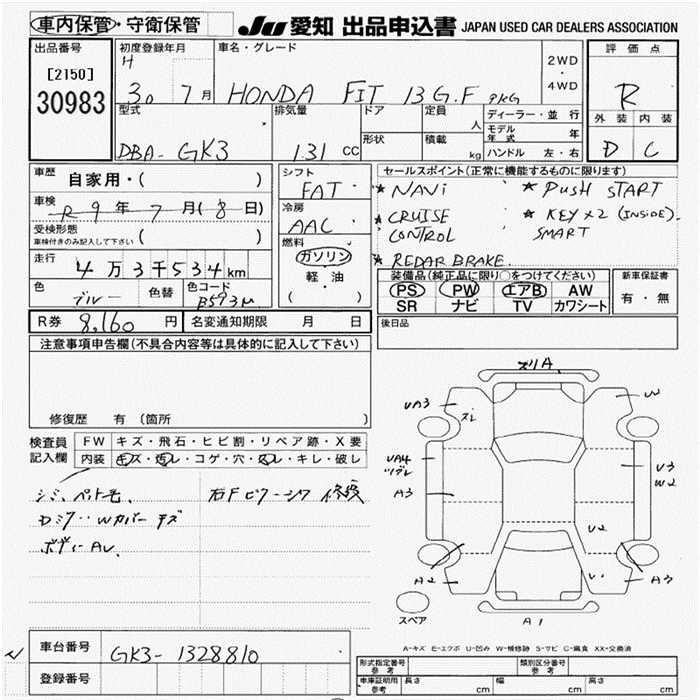 車内保管・守衛保管
JU 愛知 出品申込書 JAPAN USED CAR DEALERS ASSOCIATION
出品番号
[2150]
30983
初度登録年月
H
30 7月
車名・グレード
HONDA FIT 13G.F
2WD
・
4WD
評価点
R
外装 内装
D C
型式
DBA-GK3
排気量
1.31 CC
ドア
形状
定員
人
積載
kg
ディーラー・並行
モデル年式 年
ハンドル 左・右
車歴
自家用・( )
車検
R 9年 7月(8日)
受検形態
車検付きのみ記入して下さい ( )
走行
4万3千534km
色
ブルー
色替
色コード
B593M
シフト
FAT
冷房
AAC
燃料
ガソリン
軽・油
( )
セールスポイント(正常に機能するものに限ります)
★ NAVi ★ PUSH START
★ CRUISE CONTROL ★ KEY×2 (INSiDE). SMART
★ REDAR BRAKE.
装備品(純正品に限り○をつけてください)
PS PW エアB AW
SR ナビ TV カワシート
新車保証書
有・無
R券 8,160 円 名変通知期限 月 日
後日品
注意事項申告欄(不具合内容等は具体的に記入して下さい)
修復歴 有 (箇所
検査員記入欄
FW キズ・飛石・ヒビ割・リペア跡・X要
内装 キズ・汚レ・コゲ・穴・スレ・キレ・破レ
シミ、ペット毛、
Dミラー Wカバー キズ
ボディーAU、
ズリA
UA3
ズレ
W
UA4
ツブレ
A3
U3
W2
U2
A2
A1
スペア
A-キズ E-エクボ U-凹み W-補修跡 S-サビ C-腐食 XX-交換済
車台番号 GK3-1328810
登録番号
形式指定番号
参考
類別区分番号
参考
車庫証明用
参考
長さ cm
幅 cm
高さ cm